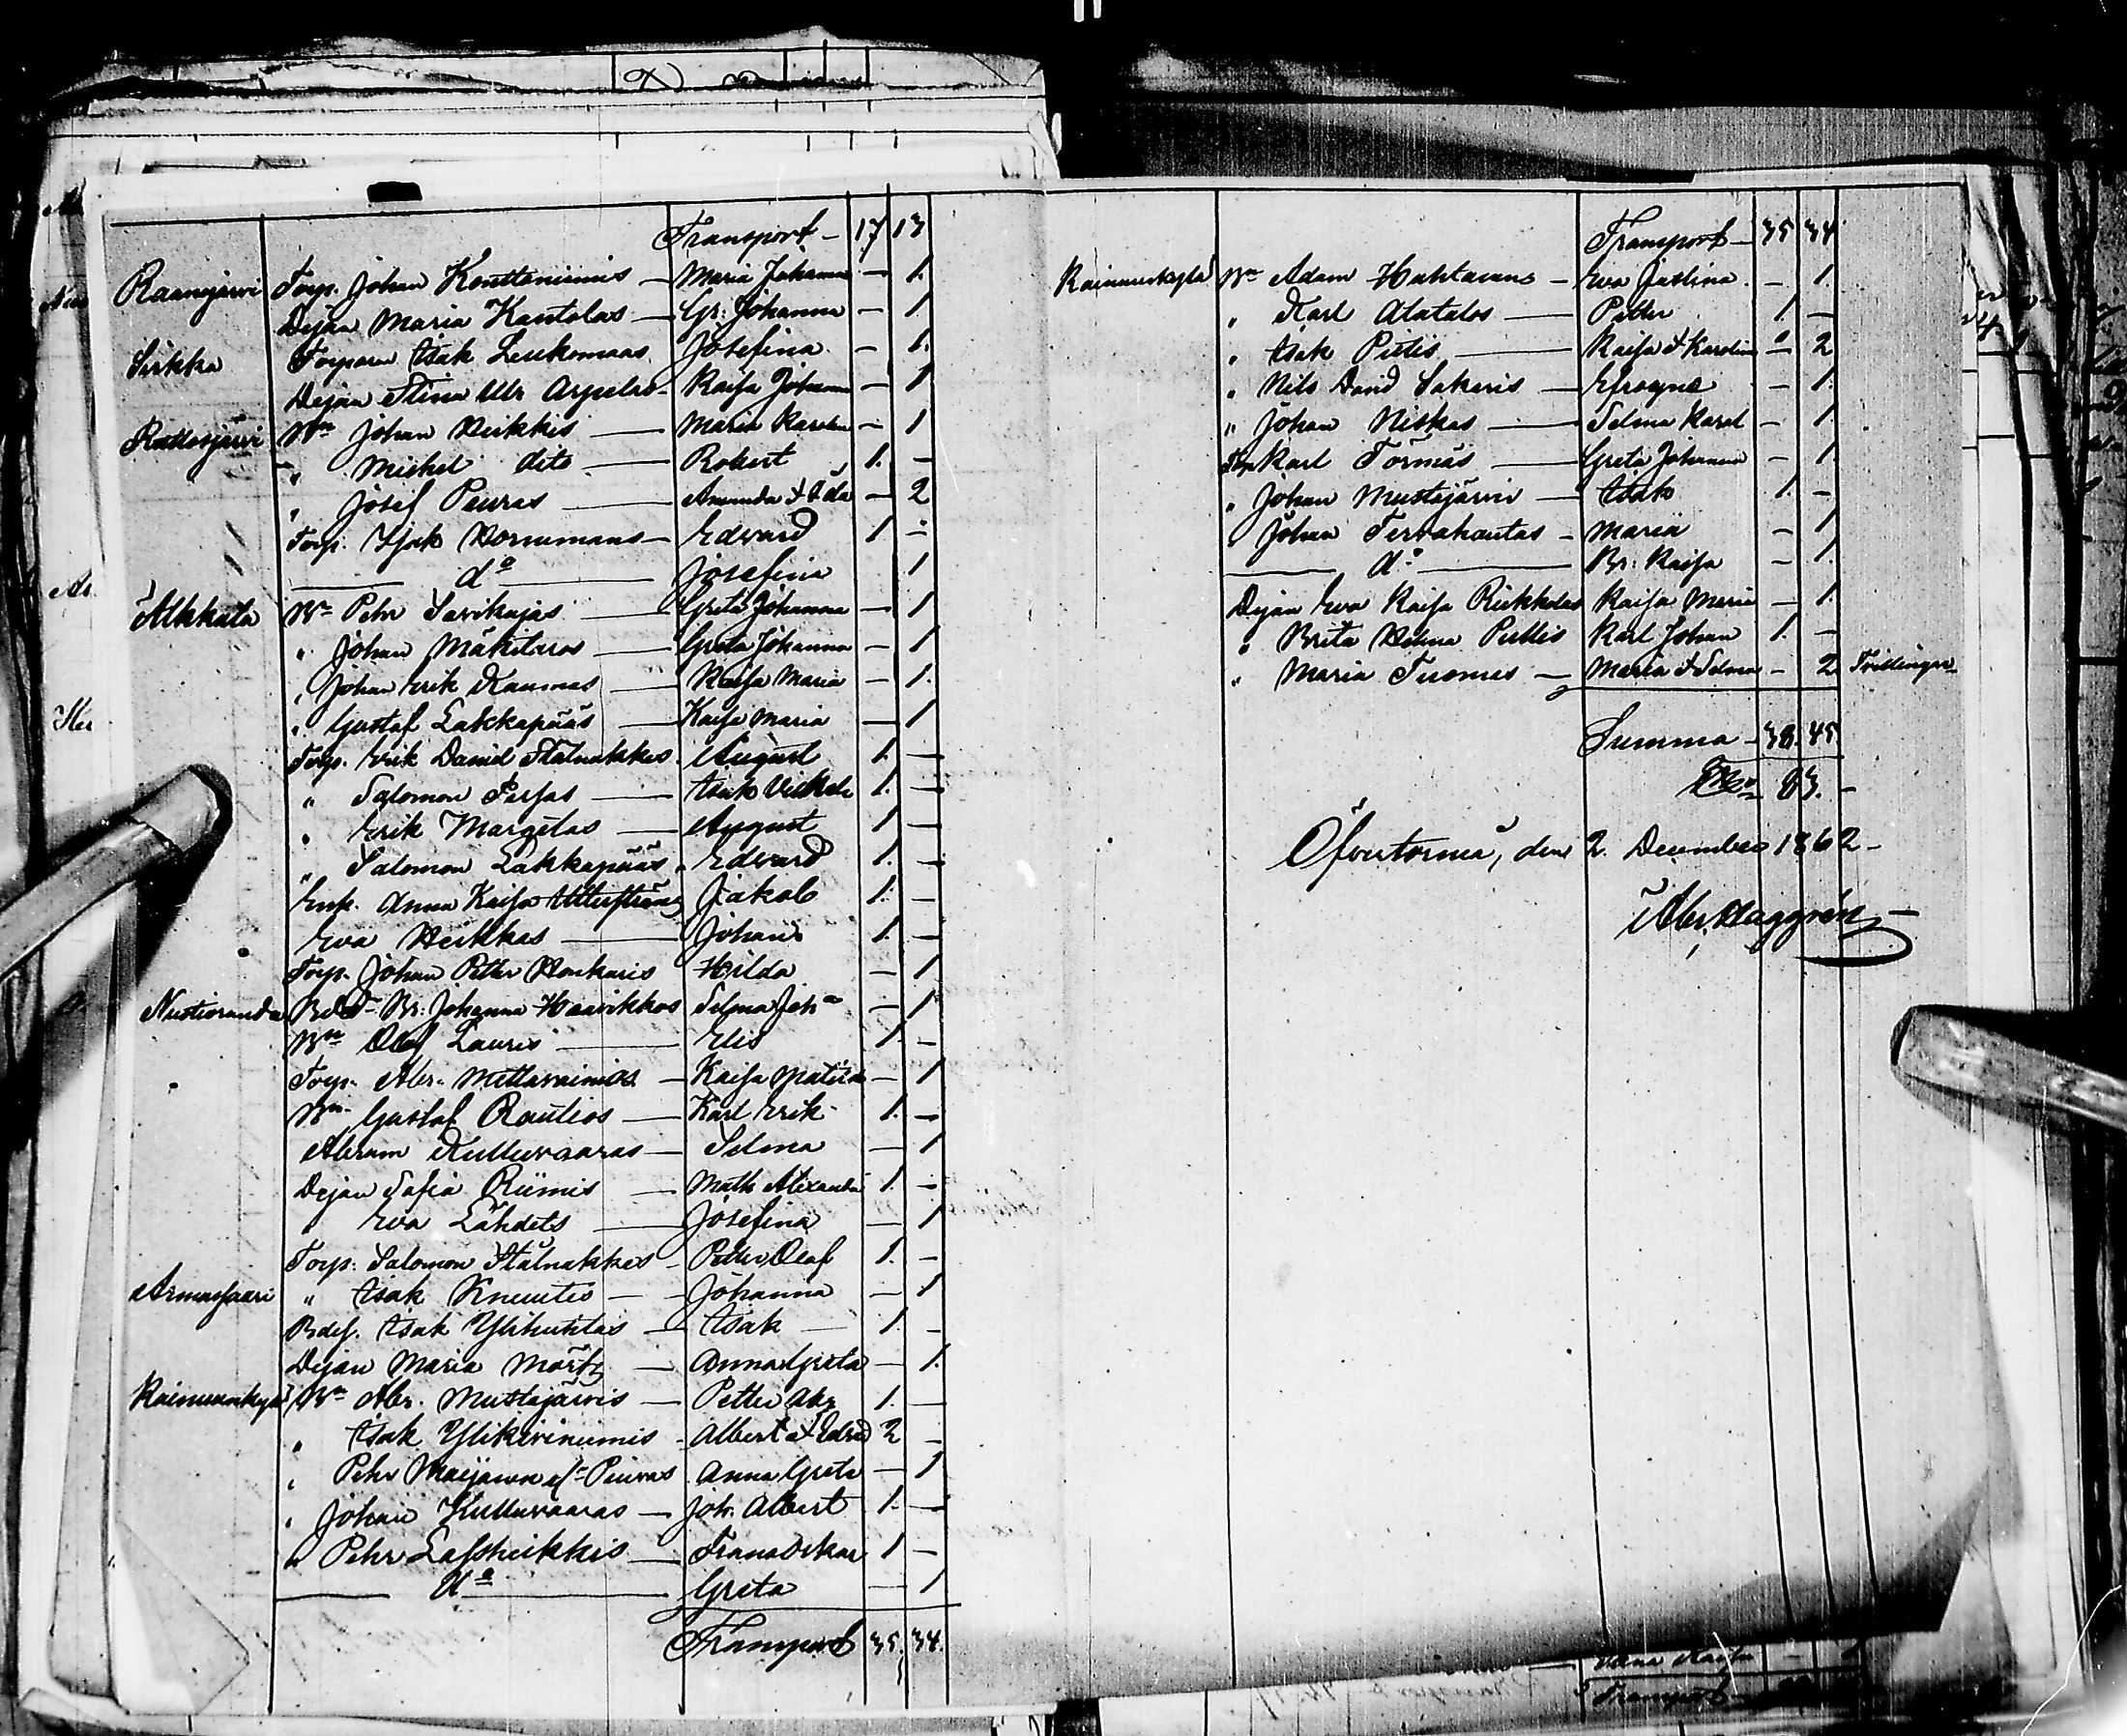 Transport - 17 13
Raanujärvi Torp. Johan Konttaniemis - Maria Johanna - 1.
Dejan Maria Kantolas - Gr. Johanna - 1
Sirkka Torparen Isak Leukomaas Josefina - 1.
Dejan Stina Ulr Arpelas - Kaisa Johanna - 1
Rattosjärvi Bn Johan Heikkis - Maria Karolin - 1
" Mickel dito - Robert 1. -
" Josef Peuras - Amanda & Ida - 2
Torp. Isak Vornumans - Edvard 1 -
do Josefina 1
Alkkula Bn Pehr Savikujas - Greta Johanna - 1
" Johan Mäkitaros - Greta Johanna - 1
" Johan Erik Kaumas - Kaisa Maria - 1.
" Gustaf Lakkapääs - Kaisa Maria - 1
Torp. Erik Daniel Stålnakkes August 1. -
" Salomon Pasas - Isak 1. -
" Erik Margetas - August 1 -
" Salomon Lakkapääs " Edvard 1. -
Enk. Anna Kaisa Jakob 1. -
Eva Heikkas - Johan 1. -
Torp. Johan Petter Honkanis Hilda - 1
Nuotioranda Br. Johanna Haavikkos Selma Joha - 1
Bn Olof Lauris - Elis 1. -
Torp. Abr. Mettävainios - Kaisa Matilda - 1
Bn Gustaf Rautios - Karl Erik 1. -
Abram Kulluvaaras - Selma - 1
Dejan Sofia Riimis - Math Alexander 1. -
" Eva Lähdets - Josefina - 1
Torp. Salomon Stålnakkes - Petter Olof 1. -
Armassaari " Isak Kneutis - Johanna - 1
Isak Ylihuhtas - Isak - 1. -
Dejan Maria - Anna Greta - 1.
Kainuunkylä Bn Abr. Mustajärvis - Petter Abr 1. -
" Isak Ylikiviniemis - Albert & Edvd 2 -
" Pehr Peuras Anna Greta - 1
" Johan Kulluvaaras - Joh. Albert 1. -
" Pehr Lassheikkis - Frans Oskar 1 -
do Greta - 1
Transport 35. 34.
Transport - 35 34
Kainuunkylä Bn Adam Hahtavans - Eva Justina - 1.
" Karl Alatalos - Petter 1 -
" Isak Pietis - Kaisa & Karolin - 2
" Nils David Sakaris - Efrosyne - 1.
" Johan Niskas - Selma Karol - 1.
Torp Karl Törmäs - Greta Johanna - 1.
" Johan Mustajärvis - Isak 1. -
" Johan Tervahautas - Maria - 1.
do Br. Kaisa - 1.
Dejan Eva Kaisa Riekkolas Kaisa Maria - 1.
" Brita Helena Karl Johan 1. -
" Maria Tuomas - Maria & Selma - 2 Tvillingar
Summa - 38. 45.
83. -
Öfvertorneå, den 2. December 1862 -
Abr. Haggrén -
Transport